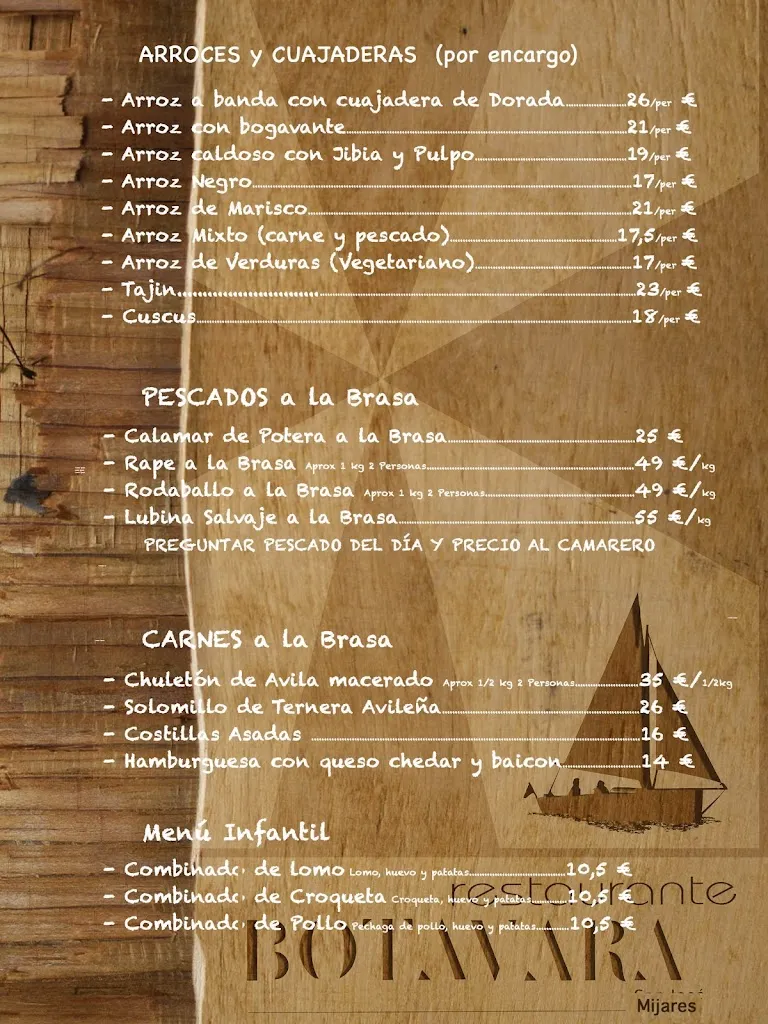 ARROCES y CUAJADERAS (por encargo)
- Arroz a banda con cuajadera de Dorada....................26/per €
- Arroz con bogavante....................21/per €
- Arroz caldoso con Jibia y Pulpo....................19/per €
- Arroz Negro....................17/per €
- Arroz de Marisco....................21/per €
- Arroz Mixto (carne y pescado)....................17,5/per €
- Arroz de Verduras (Vegetariano)....................17/per €
- Tajin....................23/per €
- Cuscus....................18/per €
PESCADOS a la Brasa
- Calamar de Potera a la Brasa....................25 €
- Rape a la Brasa Aprox 1 kg 2 Personas....................49 €/kg
- Rodaballo a la Brasa Aprox 1 kg 2 Personas....................49 €/kg
- Lubina Salvaje a la Brasa....................55 €/kg
PREGUNTAR PESCADO DEL DÍA Y PRECIO AL CAMARERO
CARNES a la Brasa
- Chuletón de Avila macerado Aprox 1/2 kg 2 Personas....................35 €/1/2kg
- Solomillo de Ternera Avileña....................26 €
- Costillas Asadas ....................16 €
- Hamburguesa con queso chedar y baicon....................14 €
Menú Infantil
- Combinado de lomo Lomo, huevo y patatas....................10,5 €
- Combinado de Croqueta Croqueta, huevo y patatas....................10,5 €
- Combinado de Pollo Pechaga de pollo, huevo y patatas....................10,5 €
restaurante
BOTAVARA
Mijares